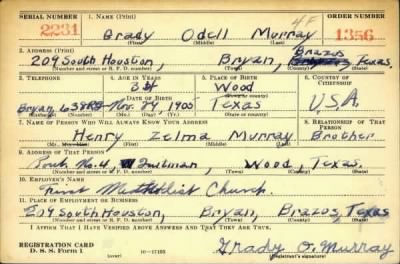 SERIAL NUMBER 1. NAME (Print) ORDER NUMBER
2231 Grady Odell Murray 4F 1356
(First) (Middle) (Last)
2. ADDRESS (Print)
209 South Houston, Bryan, Brazos, Texas
(Number and street or R. F. D. number) (Town) (County) (State)
3. TELEPHONE 4. AGE IN YEARS 5. PLACE OF BIRTH 6. COUNTRY OF CITIZENSHIP
34 Wood
DATE OF BIRTH (Town or county)
Bryan, Nov. 1905 Texas U.S.A.
(Exchange) (Number) (Mo.) (Day) (Yr.) (State or country)
7. NAME OF PERSON WHO WILL ALWAYS KNOW YOUR ADDRESS 8. RELATIONSHIP OF THAT PERSON
Henry Zelma Murray Brother
(First) (Middle) (Last)
9. ADDRESS OF THAT PERSON
Route No. 4, Quitman, Wood, Texas.
(Number and street or R. F. D. number) (Town) (County) (State)
10. EMPLOYER'S NAME
First Methodist Church.
11. PLACE OF EMPLOYMENT OR BUSINESS
209 South Houston, Bryan, Brazos, Texas
(Number and street or R. F. D. number) (Town) (County) (State)
I AFFIRM THAT I HAVE VERIFIED ABOVE ANSWERS AND THAT THEY ARE TRUE.
REGISTRATION CARD
D. S. S. Form 1 (over) 16—17105 Grady O. Murray
(Registrant's signature)